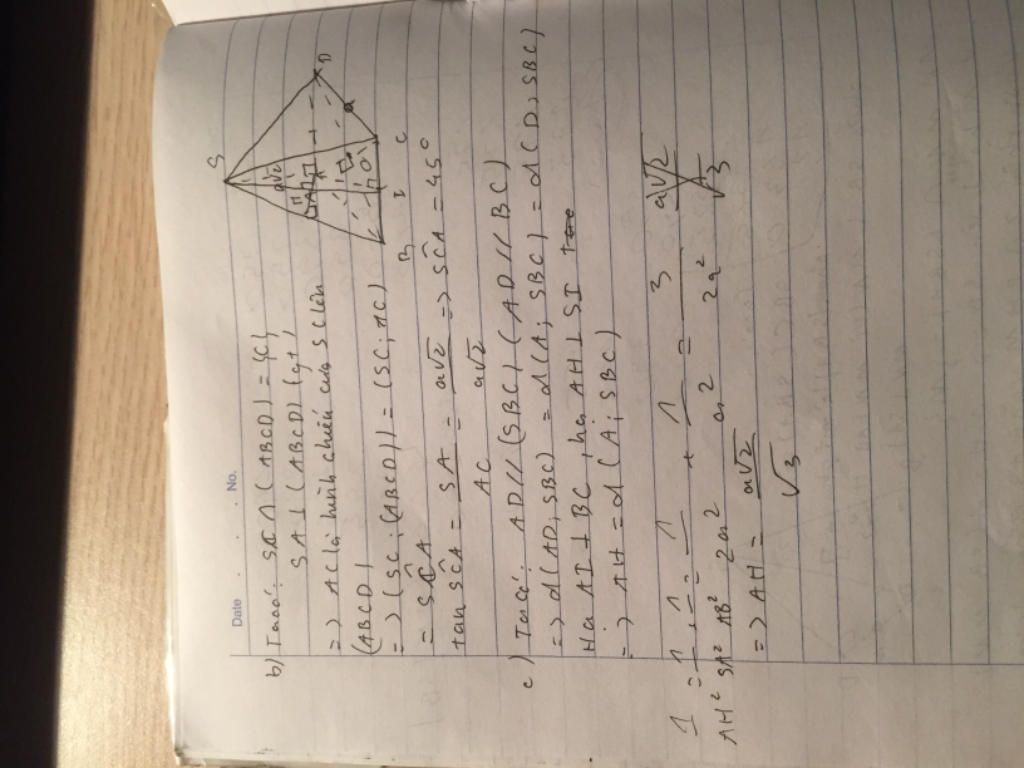 Date No.
b) Ta có: SC ∩ (ABCD) = {C}
SA ⊥ (ABCD) (gt)
=> AC là hình chiếu của SC lên
(ABCD)
=> (SC; (ABCD)) = (SC; AC)
= SĈA
tan SĈA = SA/AC = a√2/a√2 => SĈA = 45°
c) Ta có: AD // (SBC) (AD // BC)
=> d(AD, SBC) = d(A; SBC) = d(D, SBC)
Hạ AI ⊥ BC, hạ AH ⊥ SI
=> AH = d(A; SBC)
1/AH² = 1/SA² + 1/AB² = 1/2a² + 1/a² = 3/2a²
=> AH = a√2/√3
S
a√2
H
A
D
a
B
I
C